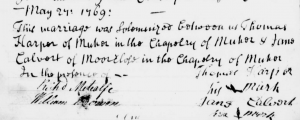 May 27th 1769:
This marriage was Solemnized between us Thomas
Harper of Muker in the Chapelry of Muker & Jane
Calvert of in the Chapelry of Muker
In the presence of Thomas Harper
Metcalfe his mark
William Jane Calvert
her mark